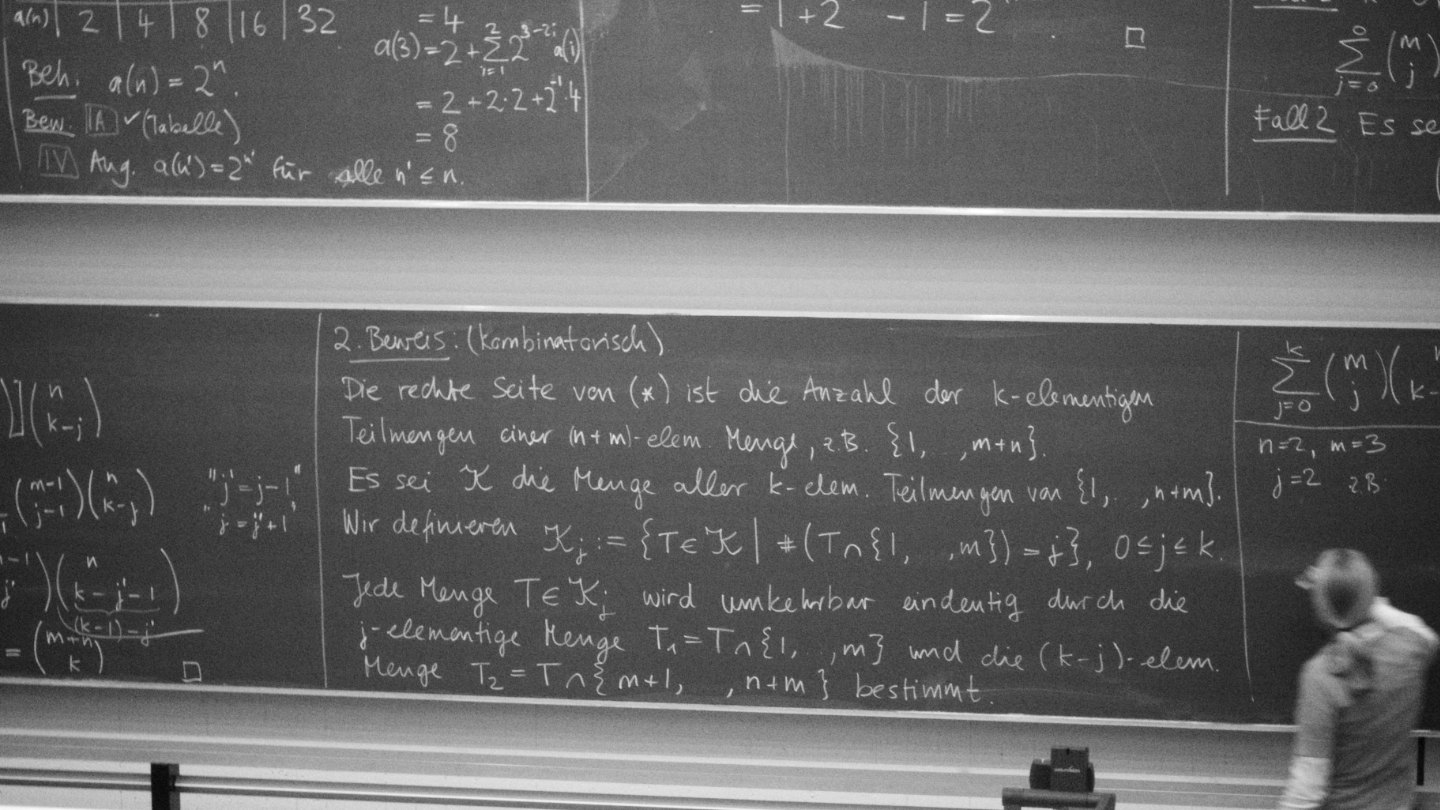 a(n) | 2 | 4 | 8 | 16 | 32
Beh. a(n) = 2^n.
Bew. IA ✓ (Tabelle)
IV Ang. a(n') = 2^n' für alle n' ≤ n.
= 4
a(3) = 2 + ∑_{i=1}^{2} 2^{3-2i} a(i)
= 2 + 2·2 + 2^{-1}·4
= 8
= 1 + 2 - 1 = 2
□
∑_{j=0}^{0} (m j)
Fall 2 Es se
)] (n k-j)
(m-1 j-1)(n k-j) "j' = j-1"
"j = j'+1"
-1 j') (n k-j'-1)
(k-1)-j'
= (m+n k) □
2. Beweis: (kombinatorisch)
Die rechte Seite von (*) ist die Anzahl der k-elementigen
Teilmengen einer (n+m)-elem. Menge, z.B. {1, ,m+n}.
Es sei K die Menge aller k-elem. Teilmengen von {1, ,n+m}.
Wir definieren K_j := {T∈K | #(T∩{1, ,m}) = j}, 0≤j≤k.
Jede Menge T∈K_j wird umkehrbar eindeutig durch die
j-elementige Menge T_1 = T∩{1, ,m} und die (k-j)-elem.
Menge T_2 = T∩{m+1, ,n+m} bestimmt.
∑_{j=0}^{k} (m j)( k-
n=2, m=3
j=2 z.B.